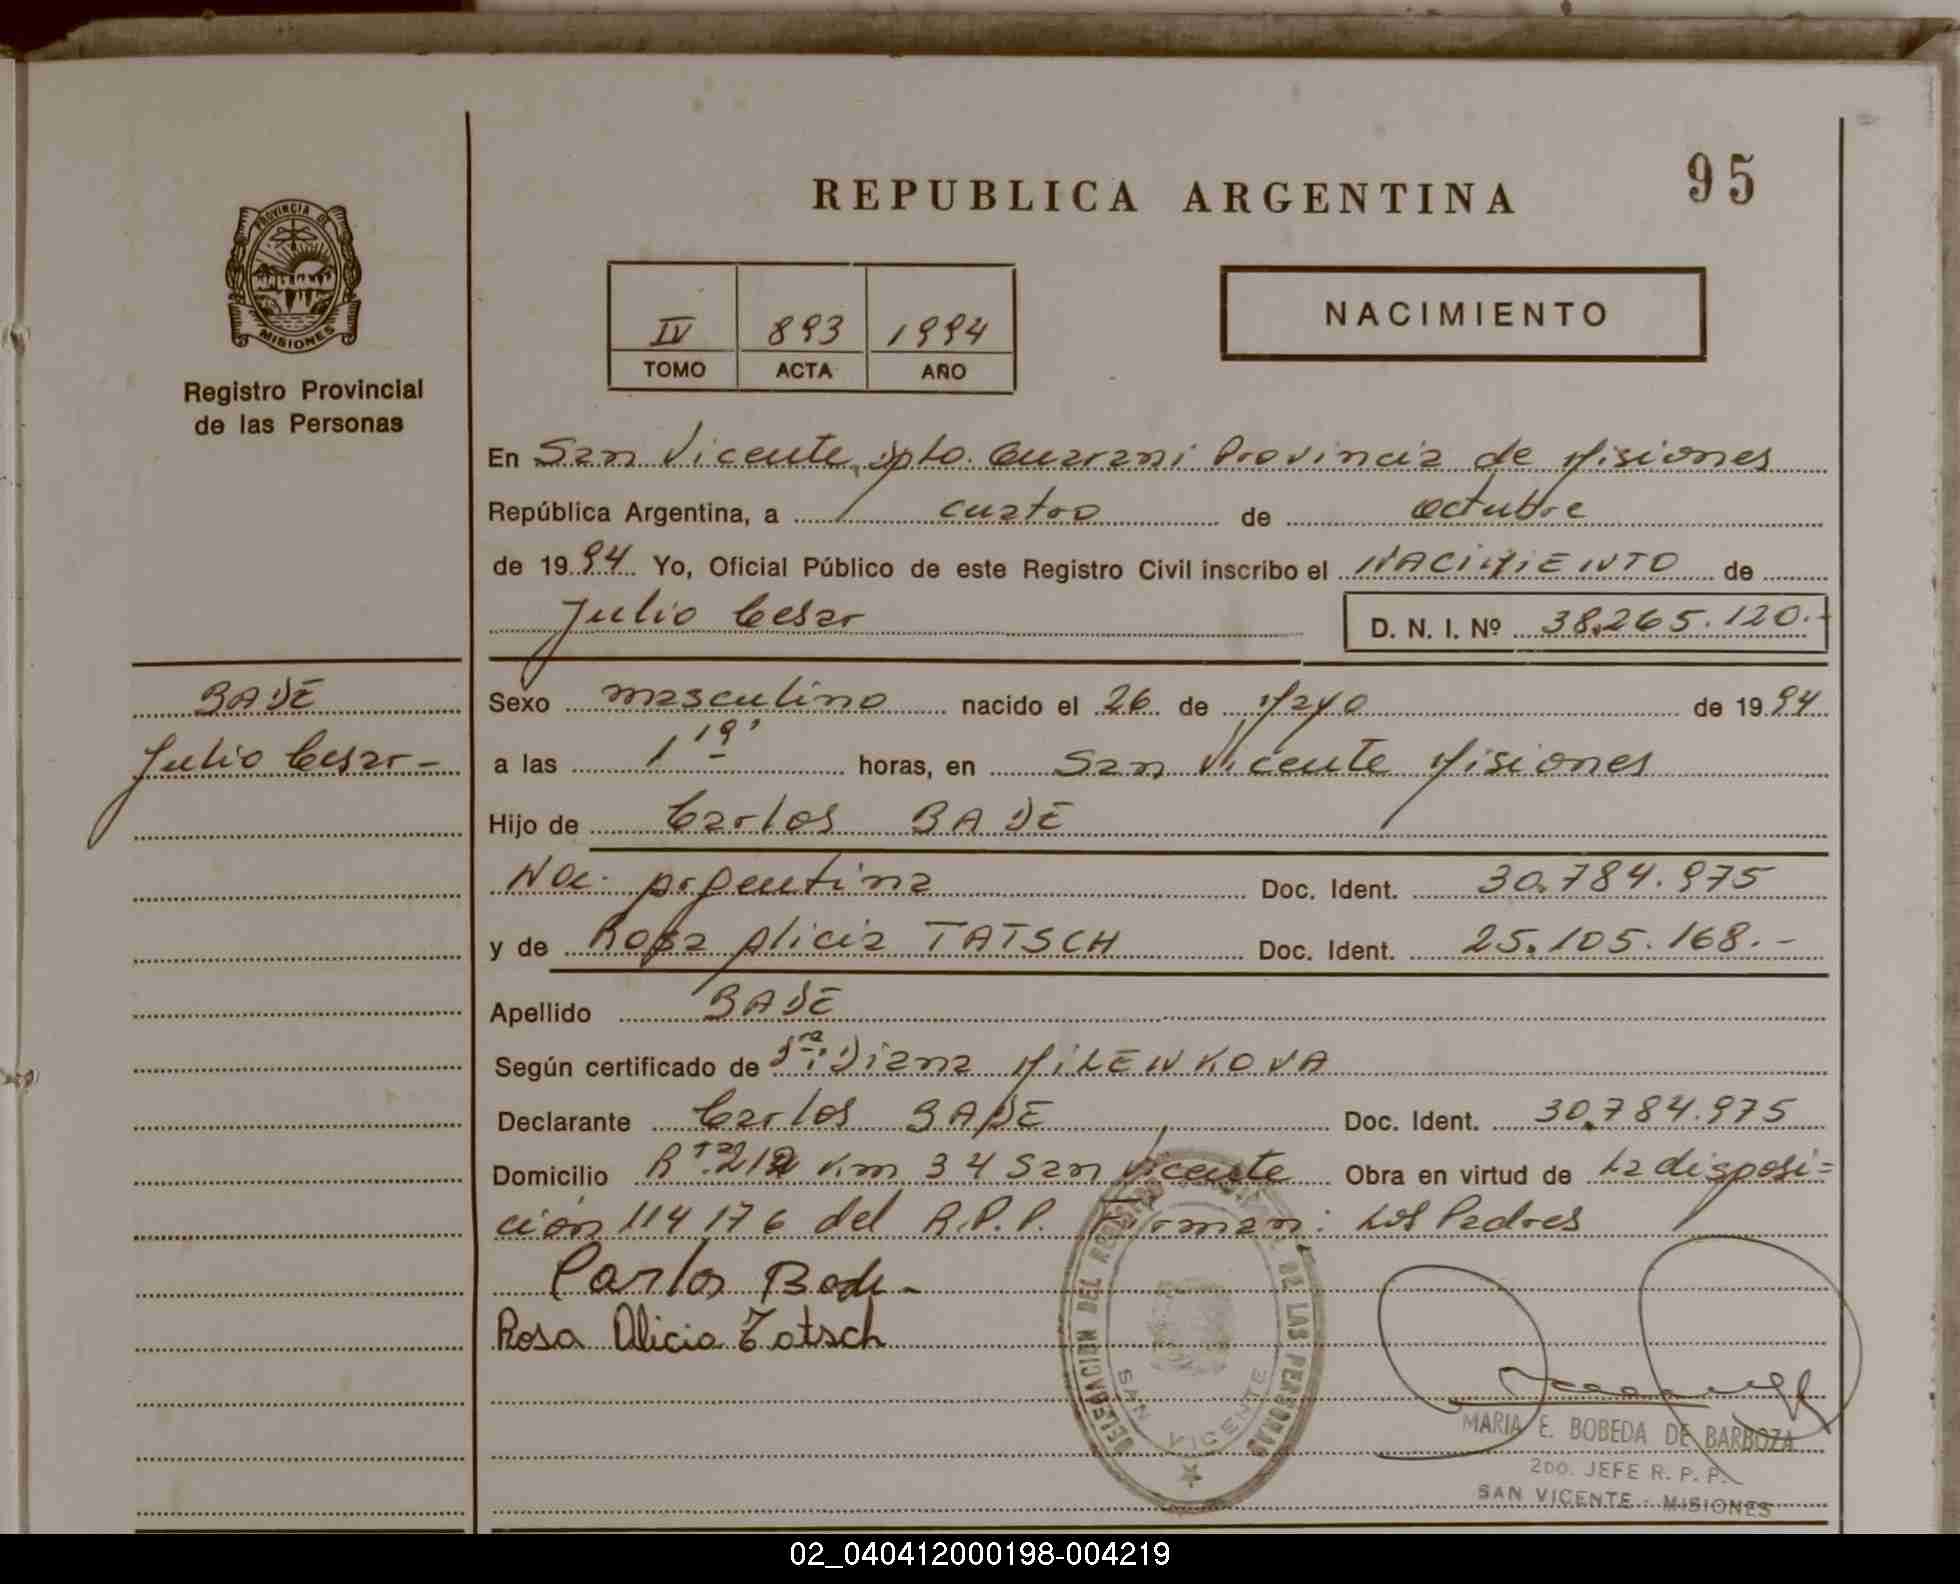 REPUBLICA ARGENTINA
95
PROVINCIA DE
MISIONES
Registro Provincial
de las Personas
IV 893 1994
TOMO ACTA AÑO
NACIMIENTO
En San Vicente, Dpto. Guarani Provincia de Misiones
República Argentina, a cuatro de octubre
de 1994 Yo, Oficial Público de este Registro Civil inscribo el NACIMIENTO de
Julio Cesar D. N. I. Nº 38.265.120.-
BADE
Julio Cesar-
Sexo masculino nacido el 26 de Mayo de 1994
a las 1 19' horas, en San Vicente Misiones
Hijo de Carlos BADE
Nac. Argentina Doc. Ident. 30.784.975
y de Rosa Alicia TATSCH Doc. Ident. 25.105.168.-
Apellido BADE
Según certificado de Dra. Diana MILENKOVA
Declarante Carlos BADE Doc. Ident. 30.784.975
Domicilio Rta. 212 Km 34 San Vicente Obra en virtud de La disposi=
ción 114176 del R.P.P. Firman: Los Padres
Carlos Bade-
Rosa Alicia Tatsch
DELEGACION DEL REGISTRO PROVINCIAL DE LAS PERSONAS
SAN VICENTE
MARIA E. BOBEDA DE BARBOZA
2DO. JEFE R. P. P.
SAN VICENTE - MISIONES
02_040412000198-004219